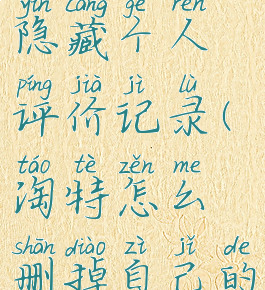 yǐn cáng gè rén
隐藏个人
píng jià jì lù
评价记录(
táo tè zěn me
淘特怎么
shān diào zì jǐ de
删掉自己的